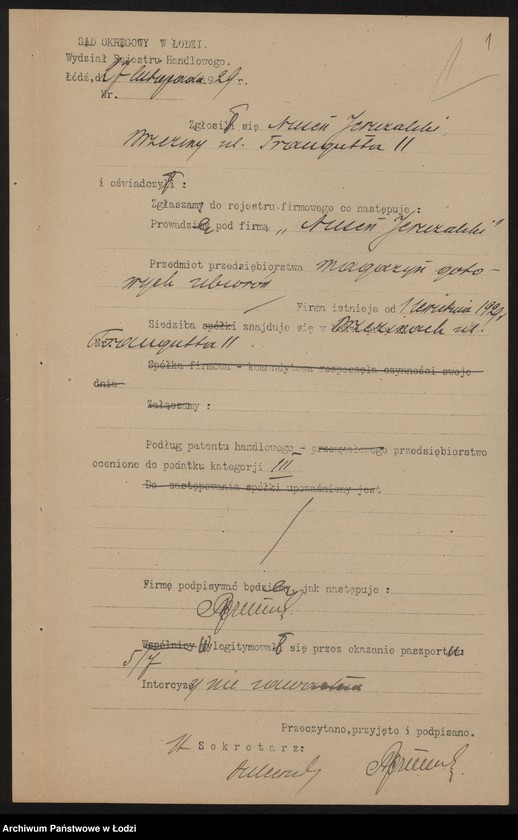 1
SĄD OKRĘGOWY W ŁODZI.
Wydział Rejestru Handlowego.
Łódź, d. 27 listopada 1929 r.
Nr.
Zgłosił się Nusen Jeruzalski
Brzeziny ul. Traugutta 11
i oświadczył :
Zgłaszamy do rejestru firmowego co następuje :
Prowadzę pod firmą „Nusen Jeruzalski"
Przedmiot przedsiębiorstwa magazyn goto-
wych ubiorów
Firma istnieje od 1 kwietnia 192
Siedziba spółki znajduje się w Brzezinach ul.
Traugutta 11.
Spółka firmowa - komandytowa rozpoczęła czynności swoje
dnia
Załączamy :
Podług patentu handlowego - przemysłowego przedsiębiorstwo
ocenione do podatku kategorji III
Do zastępowania spółki upoważniony jest
Firmę podpisywać będzie, jak następuje :
Wspólnicy Wylegitymował się przez okazanie paszportu.
5/7
Intercyzy nie zawarłem
Przeczytano, przyjęto i podpisano.
Sekretarz:
Archiwum Państwowe w Łodzi